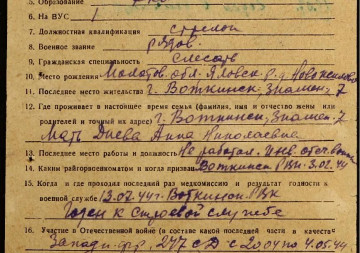 5. Образование 7 кл
6. На ВУС 1
7. Должностная квалификация стрелок
8. Военное звание рядов.
9. Гражданская специальность слесарь
10. Место рождения Молотов. обл. р-д
11. Последнее место жительства г. Воткинск, Знамен. 7
12. Где проживает в настоящее время семья (фамилия, имя и отчество жены или
родителей и точный их адрес) г. Воткинск, Знамен. 7
Мать Анна Николаевна
13. Последнее место работы и должность Не работал. Инв. отеч. войны
14. Каким райгорвоенкоматом и когда призван Воткинск РВК 3.02.44
15. Когда и где проходил последний раз медкомиссию и результат годности к
военной службе 13.02.44 г. Воткинск РВК
Годен к строевой службе
16. Участие в Отечественной войне (в составе какой последней части и в качестве
Запад. фр., 247 СД с 20.04 по 4.05.44 г.